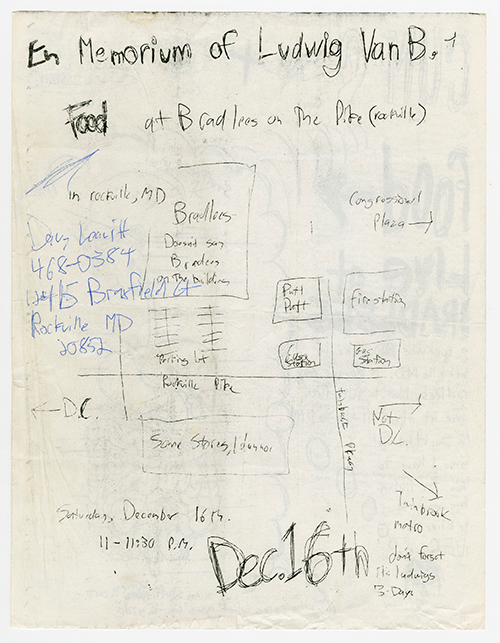 En Memorium of Ludwig Van B.
Food at Bradlees on The Pike (rockville)
in rockville, MD
Bradlees
Doesn't say
Bradlees
on The building
Congressional
Plaza
468-0384
Brassfield Ct
Rockville MD
20852
Putt
Putt
Fire station
Gas
Station
Gas
Station
Parking lot
Rockville Pike
D.C.
Some Stores, I dunno
twinbrook Pkwy
Not
D.C.
Twinbrook
metro
Saturday, December 16th.
11-11:30 P.M.
Dec.16th
don't forget
its ludwigs
B-Day